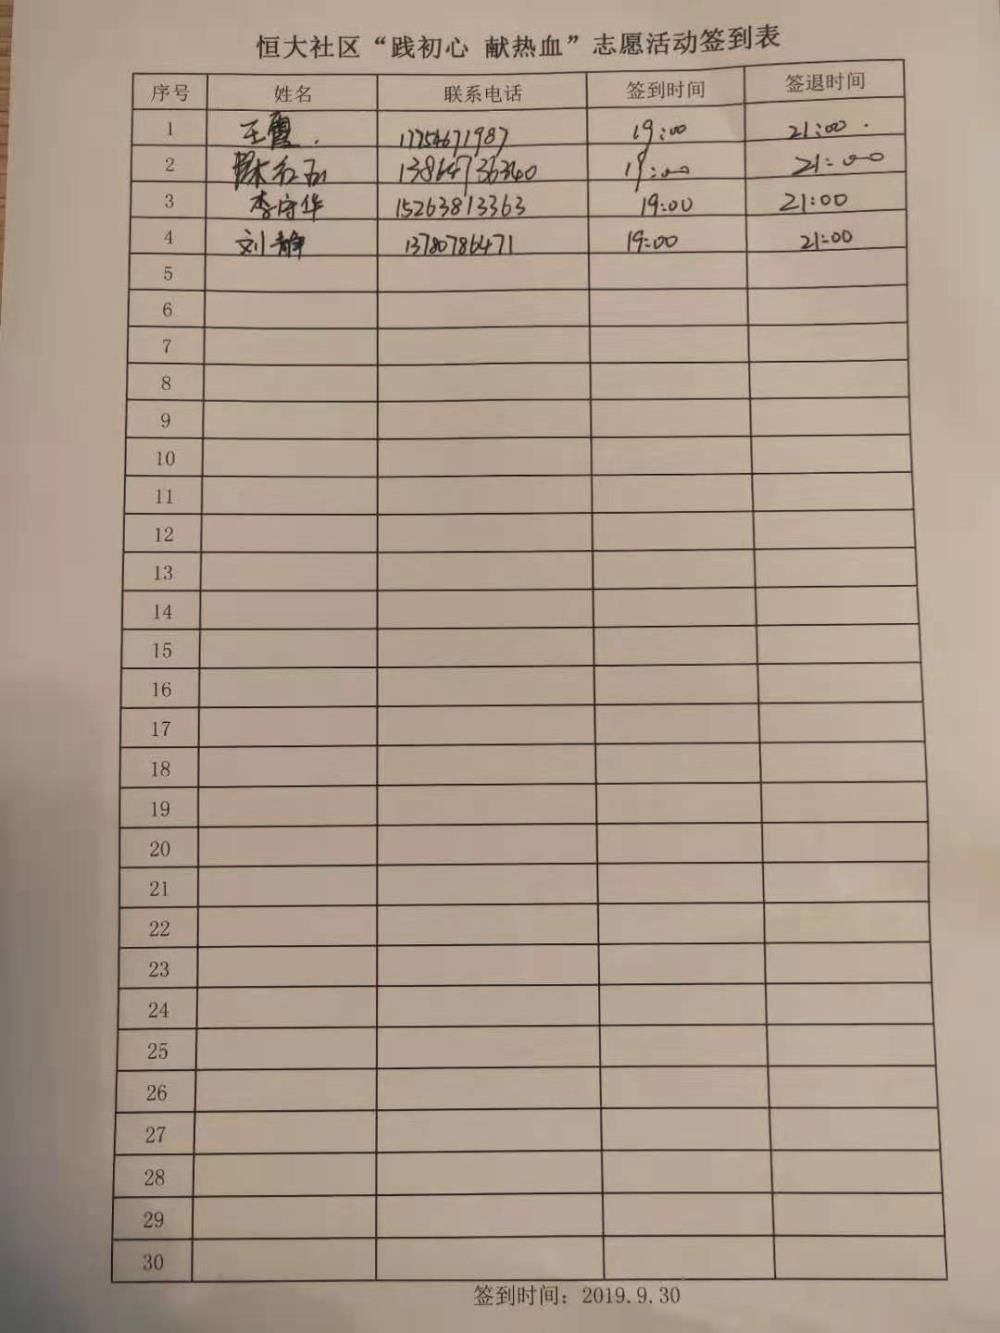 恒大社区“践初心 献热血”志愿活动签到表
序号 姓名 联系电话 签到时间 签退时间
1 王霞. 17754671987 19:00 21:00.
2 13864736340 19:00 21:00
3 李守华 15263813363 19:00 21:00
4 刘静 13780786471 19:00 21:00
5
6
7
8
9
10
11
12
13
14
15
16
17
18
19
20
21
22
23
24
25
26
27
28
29
30
签到时间：2019.9.30